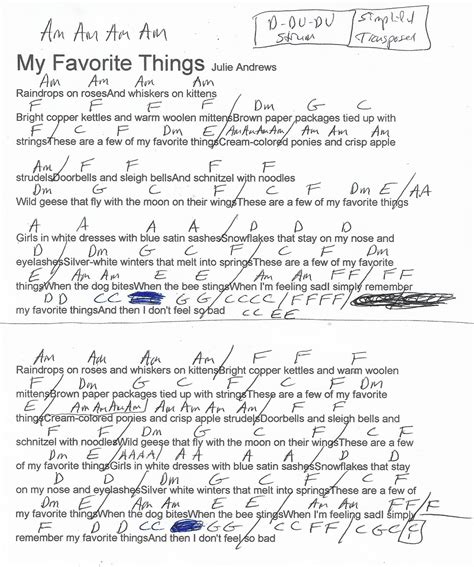 Am Am Am Am
D-DU-DU Strum
Simplified Transposed
My Favorite Things Julie Andrews
Am Am Am Am
Raindrops on rosesAnd whiskers on kittens
F F F F Dm G C
Bright copper kettles and warm woolen mittensBrown paper packages tied up with
F / C F Dm E / Am Am Am Am / Am Am Am Am
stringsThese are a few of my favorite thingsCream-colored ponies and crisp apple
Am / F F F F
strudelsDoorbells and sleigh bellsAnd schnitzel with noodles
Dm G C F / C F Dm E / AA
Wild geese that fly with the moon on their wingsThese are a few of my favorite things
A A A / D D D
Girls in white dresses with blue satin sashesSnowflakes that stay on my nose and
D / Dm G C F / C F Dm
eyelashesSilver-white winters that melt into springsThese are a few of my favorite
E / Am Am E E / Am Am FF / FF
thingsWhen the dog bitesWhen the bee stingsWhen I'm feeling sadI simply remember
DD CC GG / CCCC / FFFF /
my favorite thingsAnd then I don't feel so bad
CC EE
Am Am Am Am / F F F
Raindrops on roses and whiskers on kittensBright copper kettles and warm woolen
F / Dm G C F / C F Dm
mittensBrown paper packages tied up with stringsThese are a few of my favorite
E / Am Am Am Am / Am Am Am Am / F F F
thingsCream-colored ponies and crisp apple strudelsDoorbells and sleigh bells and
F / Dm G C F / C F
schnitzel with noodlesWild geese that fly with the moon on their wingsThese are a few
Dm E / AAAA / AA A A / D D D
of my favorite thingsGirls in white dresses with blue satin sashesSnowflakes that stay
D / Dm G C F / C F
on my nose and eyelashesSilver white winters that melt into springsThese are a few of
Dm E / Am Am E E / Am Am FF / F
my favorite thingsWhen the dog bitesWhen the bee stingsWhen I'm feeling sadI simply
F D D CC GG / CC FF / CGC C
remember my favorite thingsAnd then I don't feel so bad